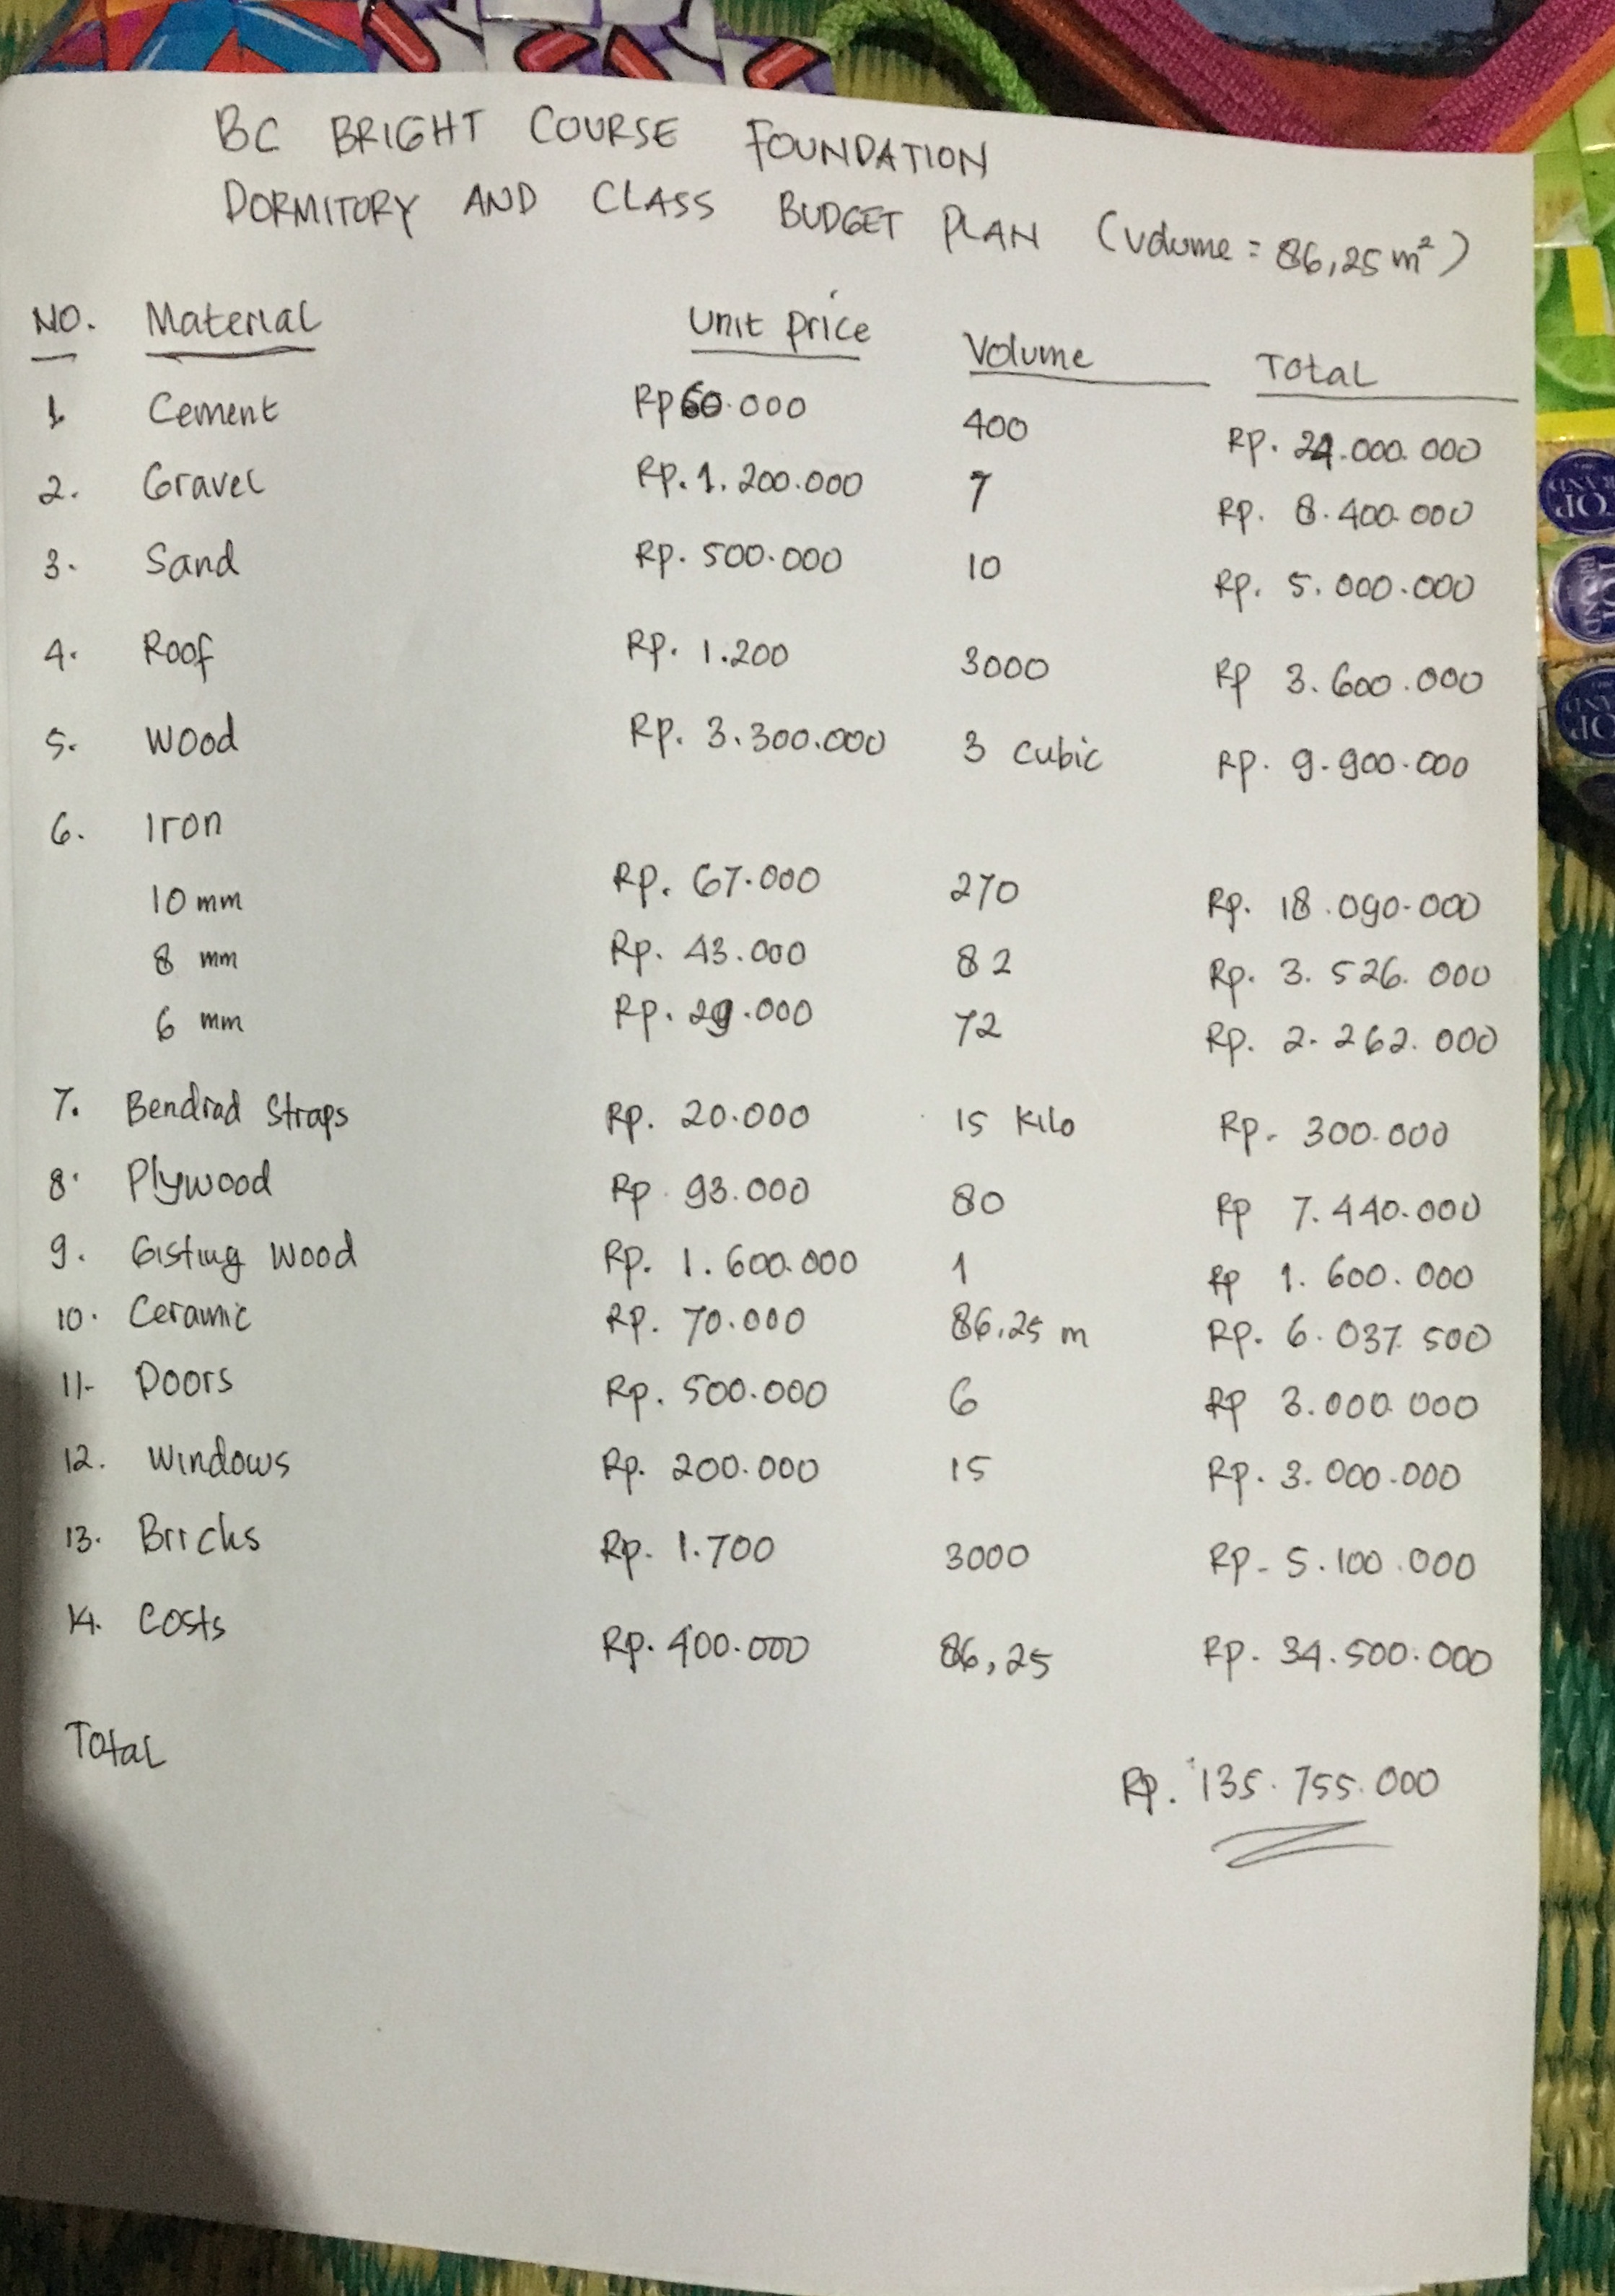 BC BRIGHT COURSE FOUNDATION
DORMITORY AND CLASS BUDGET PLAN (Volume = 86,25 m²)
NO. Material Unit price Volume Total
1. Cement Rp 60.000 400 Rp. 24.000.000
2. Gravel Rp. 1.200.000 7 Rp. 8.400.000
3. Sand Rp. 500.000 10 Rp. 5.000.000
4. Roof Rp. 1.200 3000 Rp 3.600.000
5. Wood Rp. 3.300.000 3 cubic Rp. 9.900.000
6. Iron
10 mm Rp. 67.000 270 Rp. 18.090.000
8 mm Rp. 43.000 82 Rp. 3.526.000
6 mm Rp. 29.000 72 Rp. 2.262.000
7. Bendrad Straps Rp. 20.000 15 Kilo Rp. 300.000
8. Plywood Rp. 93.000 80 Rp 7.440.000
9. Gisting Wood Rp. 1.600.000 1 Rp 1.600.000
10. Ceramic Rp. 70.000 86,25 m Rp. 6.037.500
11. Doors Rp. 500.000 6 Rp 3.000.000
12. Windows Rp. 200.000 15 Rp. 3.000.000
13. Bricks Rp. 1.700 3000 Rp. 5.100.000
14. Costs Rp. 400.000 86,25 Rp. 34.500.000
Total Rp. 135.755.000
TOP